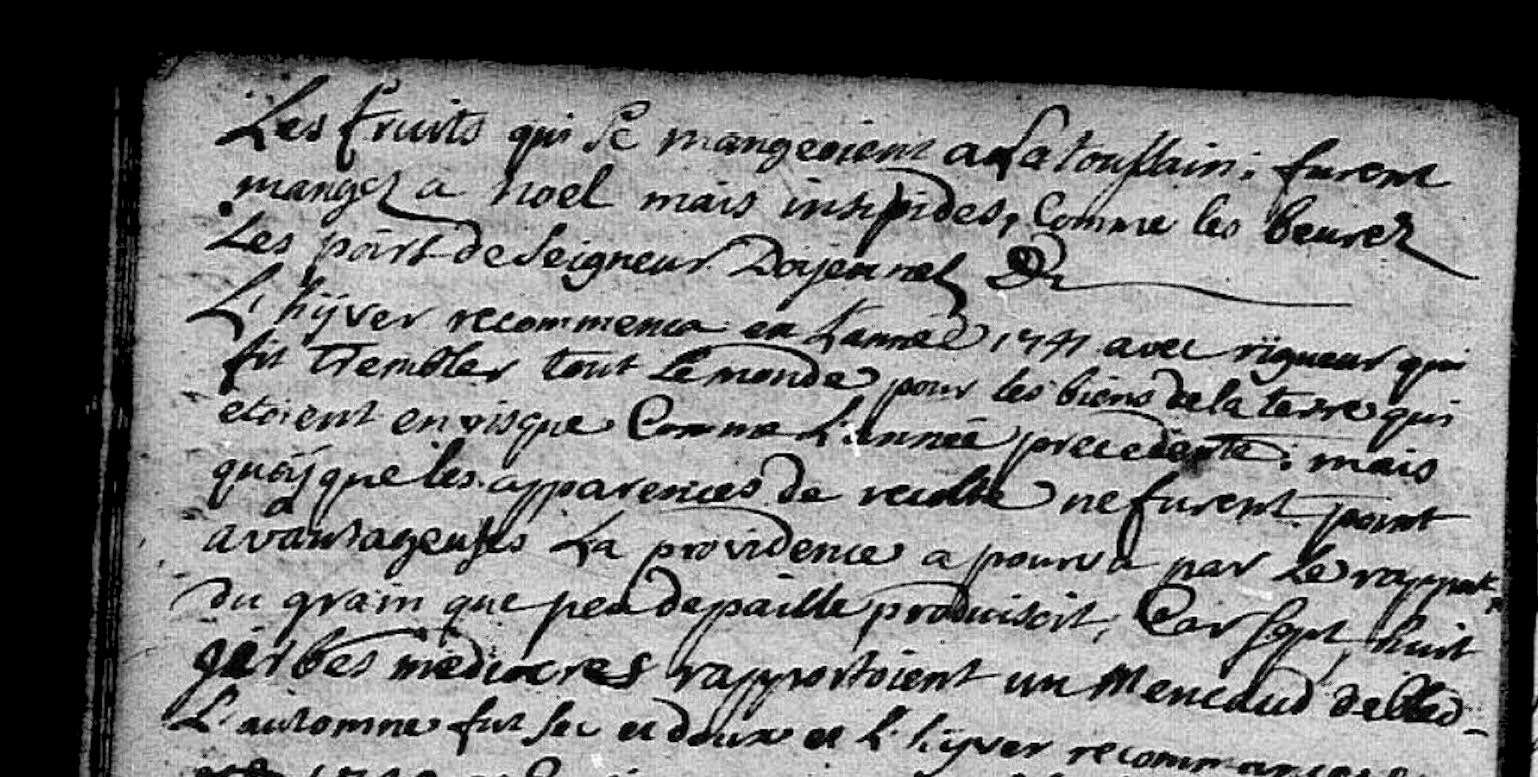 Les fruits qui se mangeoient a la toussain; furent
mangez a noel mais insipides, Comme les beurez
Les poirs de seigneur Doyennez &c
L'hÿver recommenca en L'année 1741 avec rigueur qui
fit trembler tout Le monde pour les biens de la terre qui
etoient en risque Comme L'année precedente; mais
quoÿ que les apparences de recolte ne furent point
avantageuses La providence a pourvu par Le rapport
du grain que peu de paille produisoit, Car sept, huit
jerbes mediocres rapportoient un Mencaud de bled -
L'automne fut sec et doux et L'hyver recommença